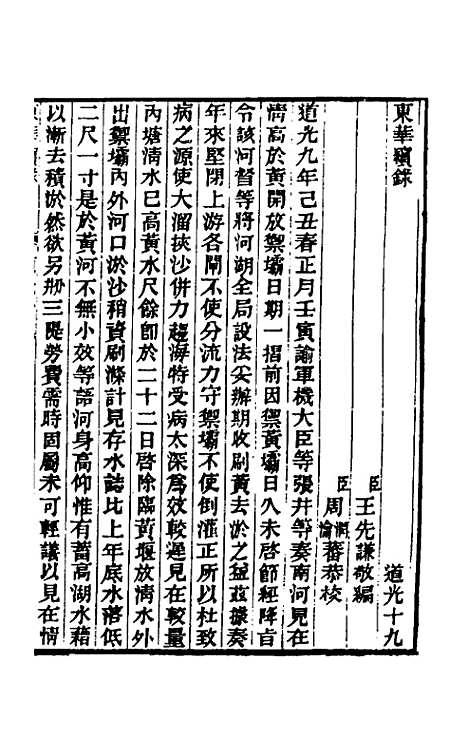 東華續錄　道光十九
臣王先謙敬編
臣周潤蕃周瀹蕃恭校
道光九年己丑春正月壬寅諭軍機大臣等張井等奏南河見在
清高於黃開放禦壩日期一摺前因禦黃壩日久未啓節經降旨
令該河督等將河湖全局設法妥辦期收刷黃去淤之益茲據奏
年來堅閉上游各閘不使分流力守禦壩不使倒灌正所以杜致
病之源使大溜挾沙併力趨海特受病太深為效較遲見在較量
內塘清水已高黃水尺餘卽於二十二日啓除臨黃堰放清水外
出禦壩內外河口淤沙稍資刷滌計見存水誌比上年底水落低
二尺一寸是於黃河不無小效等語河身高仰惟有蓄高湖水藉
以漸去積淤然欲另刱三隄勞費需時固屬未可輕議以見在情